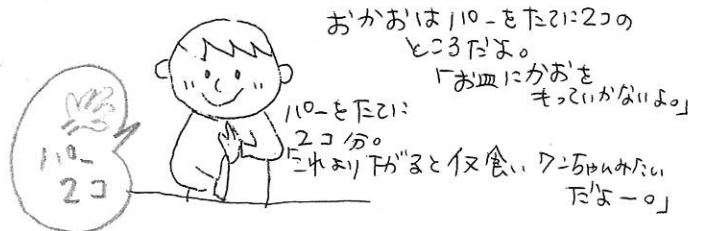 おかおはパーをたてに2コの
ところだよ。
「お皿にかおを
もっていかないよ。」
パーをたてに
2コ分。
「これより下がるとイヌ食い、ワンちゃんみたい
だよー。」
パー
2コ